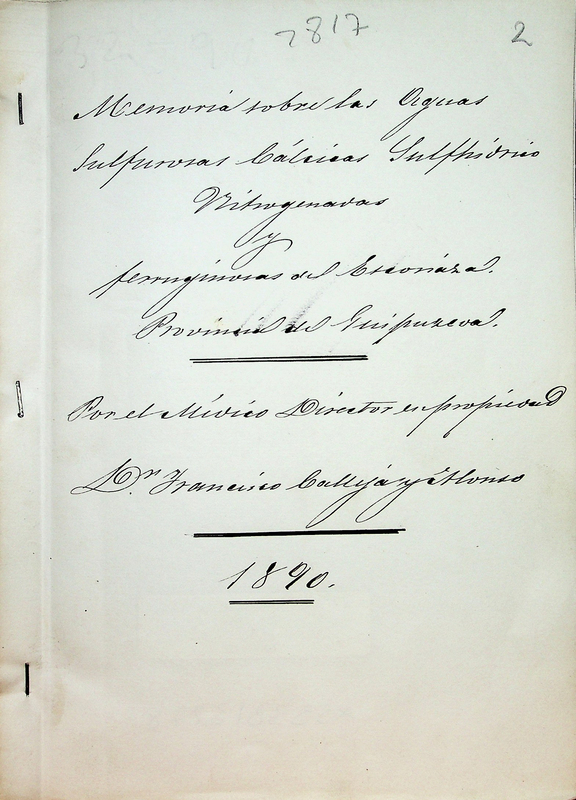 2817
2
Memoria sobre las Aguas
Sulfurosas Cálcicas Sulfhídrico
Nitrogenadas
y
ferruginosas de Escoriaza.
Provincia de Guipuzcoa.
Por el Médico Director en propiedad
Dn. Francisco Calleja y Alonso
1890.